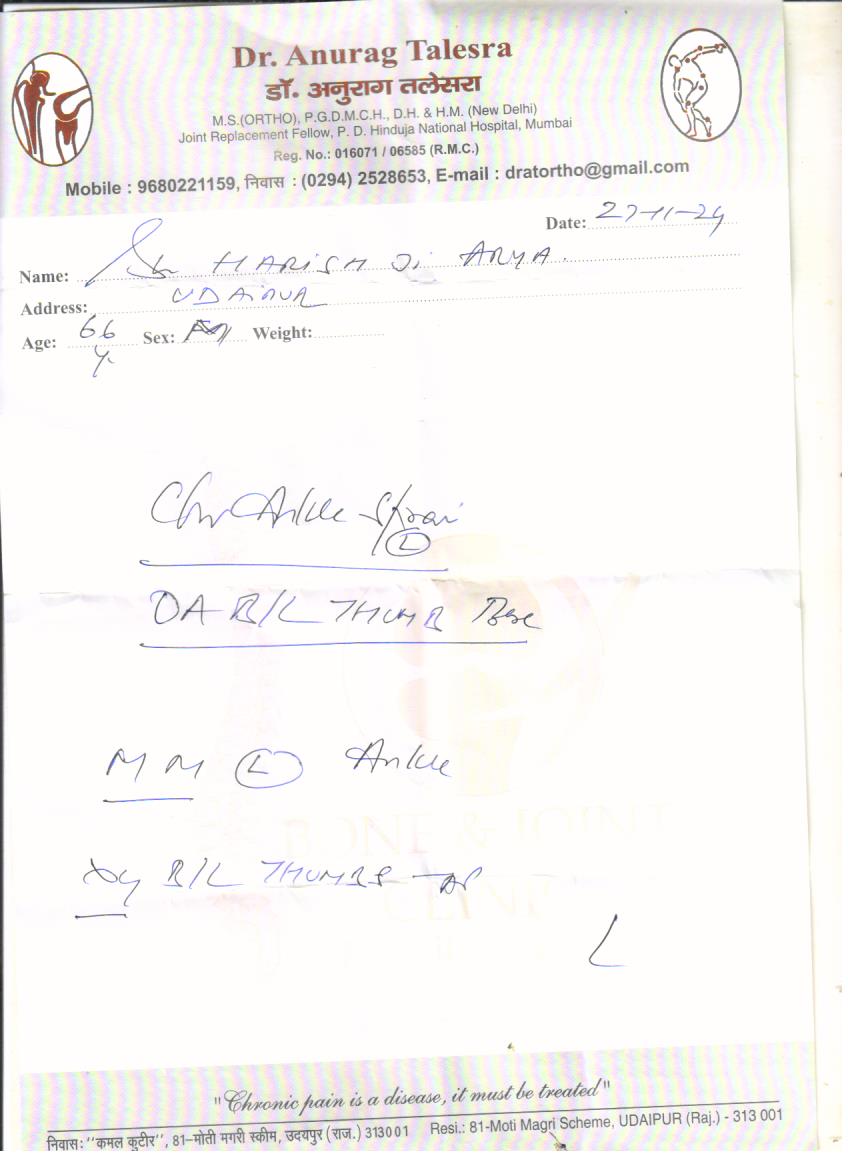 Dr. Anurag Talesra
डॉ. अनुराग तलेसरा
M.S.(ORTHO), P.G.D.M.C.H., D.H. & H.M. (New Delhi)
Joint Replacement Fellow, P. D. Hinduja National Hospital, Mumbai
Reg. No.: 016071 / 06585 (R.M.C.)
Mobile : 9680221159, निवास : (0294) 2528653, E-mail : dratortho@gmail.com
Date: 27-11-24
Name: HARISH Ji ARYA.
Address: UDAIPUR
Age: 66 Sex: Weight:
Ankle
L
OA B/L THUMB Base
M M L Ankle
B/L THUMBS - AP
BONE & JOINT
CLINIC
"Chronic pain is a disease, it must be treated"
निवास: "कमल कुटीर", 81–मोती मगरी स्कीम, उदयपुर (राज.) 313001 Resi.: 81-Moti Magri Scheme, UDAIPUR (Raj.) - 313 001